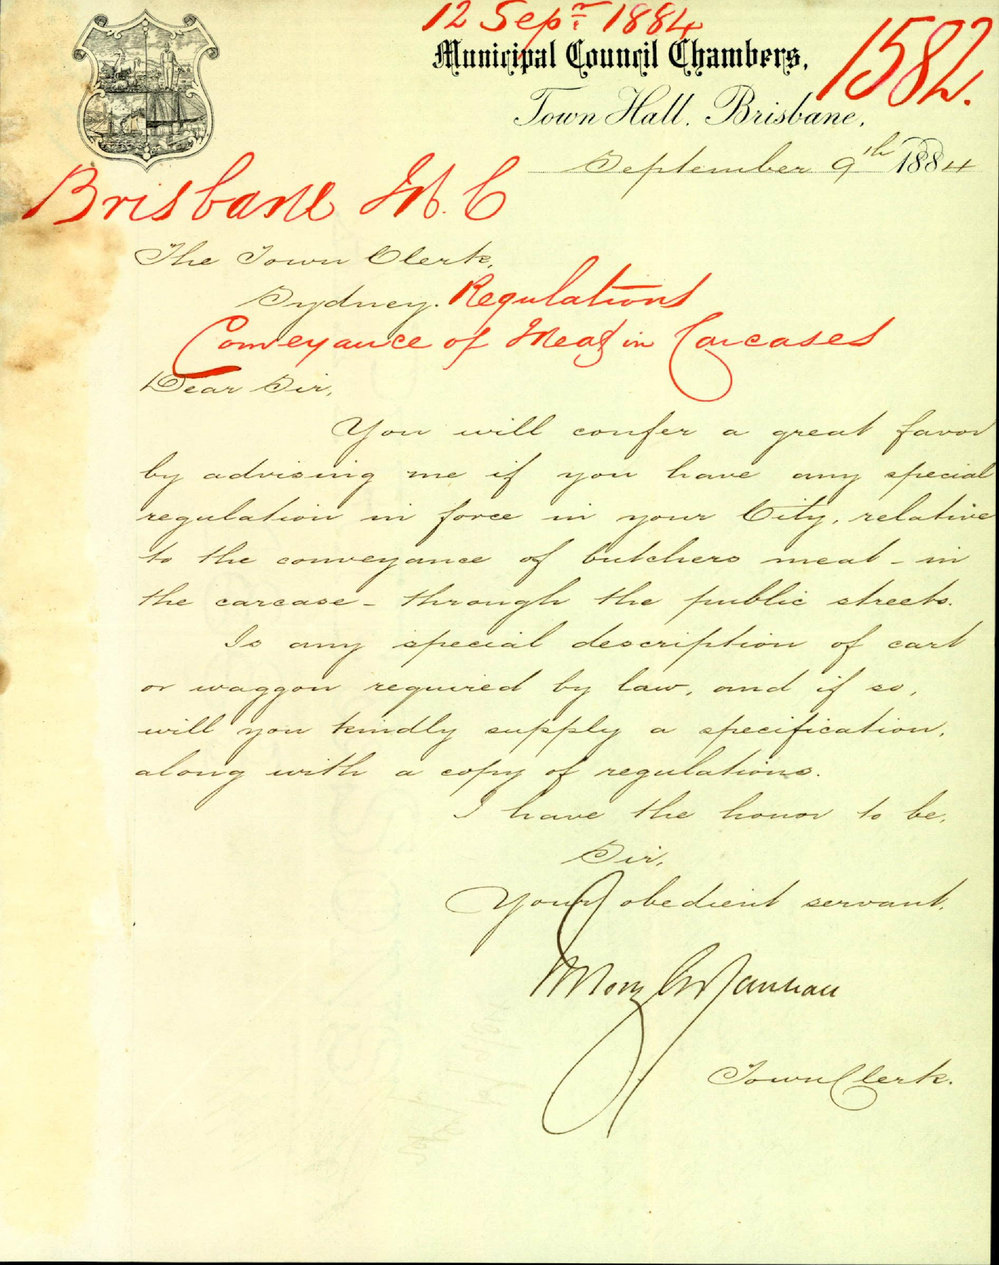 12 Sepr 1884
Municipal Council Chambers,
1582.
Town Hall, Brisbane,
September 9th 1884
Brisbane M. C
The Town Clerk,
Sydney. Regulations
Conveyance of Meat in Carcases
Dear Sir,
You will confer a great favor
by advising me if you have any special
regulation in force in your City, relative
to the conveyance of butchers meat - in
the carcase - through the public streets.
Is any special description of cart
or waggon required by law, and if so,
will you kindly supply a specification,
along with a copy of regulations.
I have the honor to be,
Sir,
Your obedient servant,
Town Clerk.